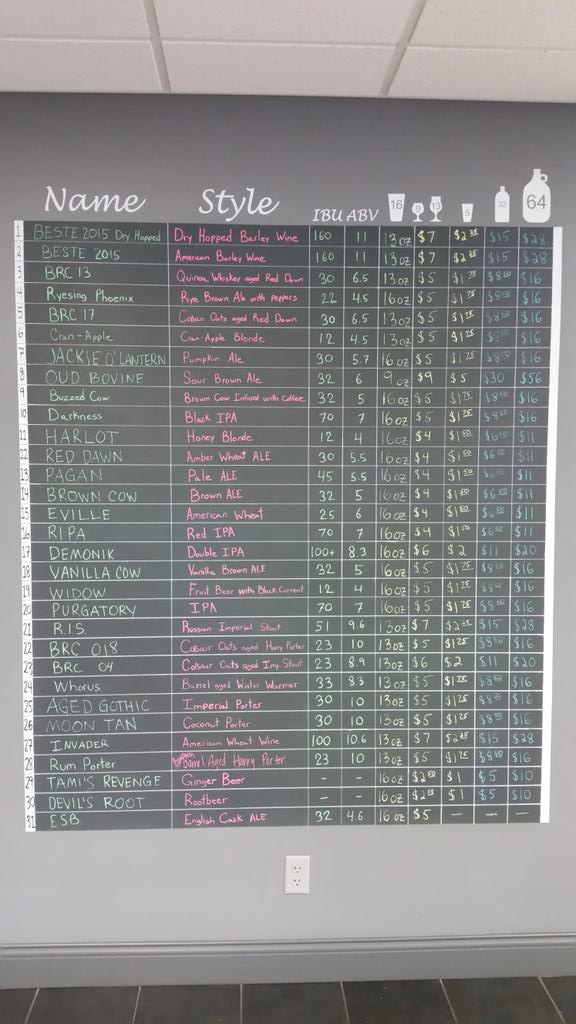 Name Style IBU ABV 16 9 13 5 32 64
1 BESTE 2015 Dry Hopped Dry Hopped Barley Wine 160 11 13oz $7 $2.25 $15 $28
2 BESTE 2015 American Barley Wine 160 11 13oz $7 $2.25 $15 $28
3 BRC 13 Quinoa Whiskey aged Red Dawn 30 6.5 13oz $5 $1.75 $8.50 $16
4 Ryesing Phoenix Rye Brown Ale with Peppers 22 4.5 16oz $5 $1.75 $8.50 $16
5 BRC 17 Oats aged Red Dawn 30 6.5 13oz $5 $1.75 $8.50 $16
6 Cran-Apple Cran-Apple Blonde 12 4.5 13oz $5 $1.75 $8.50 $16
7 JACKIE O'LANTERN Pumpkin Ale 30 5.7 16oz $5 $1.75 $8.50 $16
8 OUD BOVINE Sour Brown Ale 32 6 9oz $9 $5 $30 $56
9 Buzzed Cow Brown Cow Infused with Coffee 32 5 16oz $5 $1.75 $8.50 $16
10 Darkness Black IPA 70 7 16oz $5 $1.75 $16
11 HARLOT Honey Blonde 12 4 16oz $4 $1.50 $6.00 $11
12 RED DAWN Amber Wheat ALE 30 5.5 16oz $4 $1.50 $6.00 $11
13 PAGAN Pale ALE 45 5.5 16oz $4 $1.50 $6.00 $11
14 BROWN COW Brown ALE 32 5 16oz $4 $1.50 $6.00 $11
15 EVILLE American Wheat 25 6 16oz $4 $1.50 $6.00 $11
16 RIPA Red IPA 70 7 16oz $4 $1.50 $6.00 $11
17 DEMONIK Double IPA 100+ 8.3 16oz $6 $2 $11 $20
18 VANILLA COW Vanilla Brown ALE 32 5 16oz $5 $1.75 $8.50 $16
19 WIDOW Fruit Beer with Black Currant 12 4 16oz $5 $1.75 $8.50 $16
20 PURGATORY IPA 70 7 16oz $5 $1.75 $8.50 $16
21 R.I.S. Russian Imperial Stout 51 9.6 13oz $7 $2.25 $15 $28
22 BRC 018 Oats aged Harry Porter 23 10 13oz $5 $1.75 $8.50 $16
23 BRC 04 Oats aged Imp. Stout 23 8.9 13oz $6 $2 $11 $20
24 Whorus Barrel aged Winter Warmer 33 8.3 13oz $5 $1.75 $8.50 $16
25 AGED GOTHIC Imperial Porter 30 10 13oz $5 $1.75 $8.50 $16
26 MOON TAN Coconut Porter 30 10 13oz $5 $1.75 $8.50 $16
27 INVADER American Wheat Wine 100 10.6 13oz $7 $2.25 $15 $28
28 Rum Porter Barrel Aged Harry Porter 23 10 13oz $5 $1.75 $8.50 $16
29 TAMI'S REVENGE Ginger Beer - - 16oz $2.50 $1 $5 $10
30 DEVIL'S ROOT Rootbeer - - 16oz $2.50 $1 $5 $10
31 ESB English Cask ALE 32 4.6 16oz $5 - - -